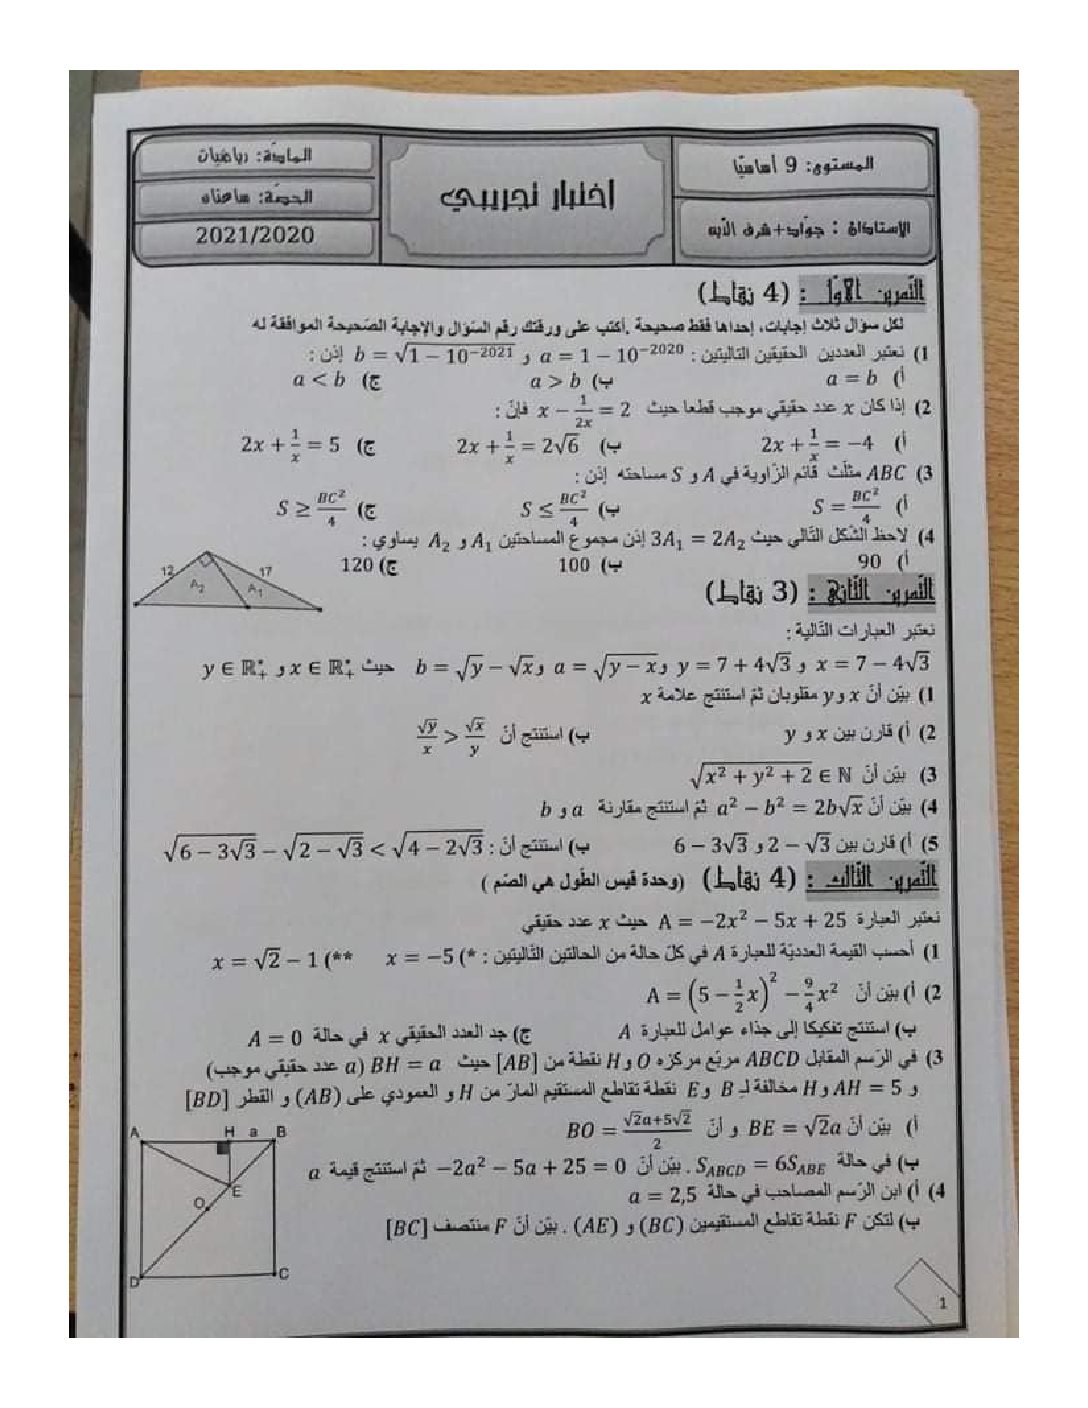 المستوى: 9 أساسيّا
الأستاذان : جوّاد+شرف الدّين
اختبار تجريبي
المادّة: رياضيات
الحصّة: ساعتان
2021/2020
التّمرين الأوّل : (4 نقاط)
لكل سؤال ثلاث إجابات، إحداها فقط صحيحة .أكتب على ورقتك رقم السّؤال والإجابة الصّحيحة الموافقة له
1) نعتبر العددين الحقيقين التاليتين : a = 1 − 10⁻²⁰²⁰ و b = √(1 − 10⁻²⁰²¹) إذن :
أ) a = b ب) a > b ج) a < b
2) إذا كان x عدد حقيقي موجب قطعا حيث x − 1/2x = 2 فإنّ :
أ) 2x + 1/x = −4 ب) 2x + 1/x = 2√6 ج) 2x + 1/x = 5
3) ABC مثلّث قائم الزّاوية في A و S مساحته إذن :
أ) S = BC²/4 ب) S ≤ BC²/4 ج) S ≥ BC²/4
4) لاحظ الشّكل التّالي حيث 3A₁ = 2A₂ إذن مجموع المساحتين A₁ و A₂ يساوي :
أ) 90 ب) 100 ج) 120
12 17 A₂ A₁
التّمرين الثّاني : (3 نقاط)
نعتبر العبارات التّالية :
x = 7 − 4√3 و y = 7 + 4√3 و a = √(y − x) و b = √y − √x حيث x ∈ ℝ*₊ و y ∈ ℝ*₊
1) بيّن أنّ x و y مقلوبان ثمّ استنتج علامة x
2) أ) قارن بين x و y ب) استنتج أنّ √y/x > √x/y
3) بيّن أنّ √(x² + y² + 2) ∈ ℕ
4) بيّن أنّ a² − b² = 2b√x ثمّ استنتج مقارنة a و b
5) أ) قارن بين 2 − √3 و 6 − 3√3 ب) استنتج أنّ : √(6 − 3√3) − √(2 − √3) < √(4 − 2√3)
التّمرين الثّالث : (4 نقاط) (وحدة قيس الطّول هي الصّم )
نعتبر العبارة A = −2x² − 5x + 25 حيث x عدد حقيقي
1) أحسب القيمة العدديّة للعبارة A في كلّ حالة من الحالتين التّاليتين : *) x = −5 **) x = √2 − 1
2) أ) بيّن أنّ A = (5 − 1/2 x)² − 9/4 x²
ب) استنتج تفكيكا إلى جذاء عوامل للعبارة A ج) جد العدد الحقيقي x في حالة A = 0
3) في الرّسم المقابل ABCD مربّع مركزه O و H نقطة من [AB] حيث BH = a (a عدد حقيقي موجب)
و AH = 5 و H مخالفة لـ B و E نقطة تقاطع المستقيم المارّ من H و العمودي على (AB) و القطر [BD]
أ) بيّن أنّ BE = √2a و أنّ BO = (√2a+5√2)/2
ب) في حالة S_ABCD = 6S_ABE . بيّن أنّ −2a² − 5a + 25 = 0 ثمّ استنتج قيمة a
4) أ) ابن الرّسم المصاحب في حالة a = 2,5
ب) لتكن F نقطة تقاطع المستقيمين (BC) و (AE) . بيّن أنّ F منتصف [BC]
A H a B
E
O
D C
1